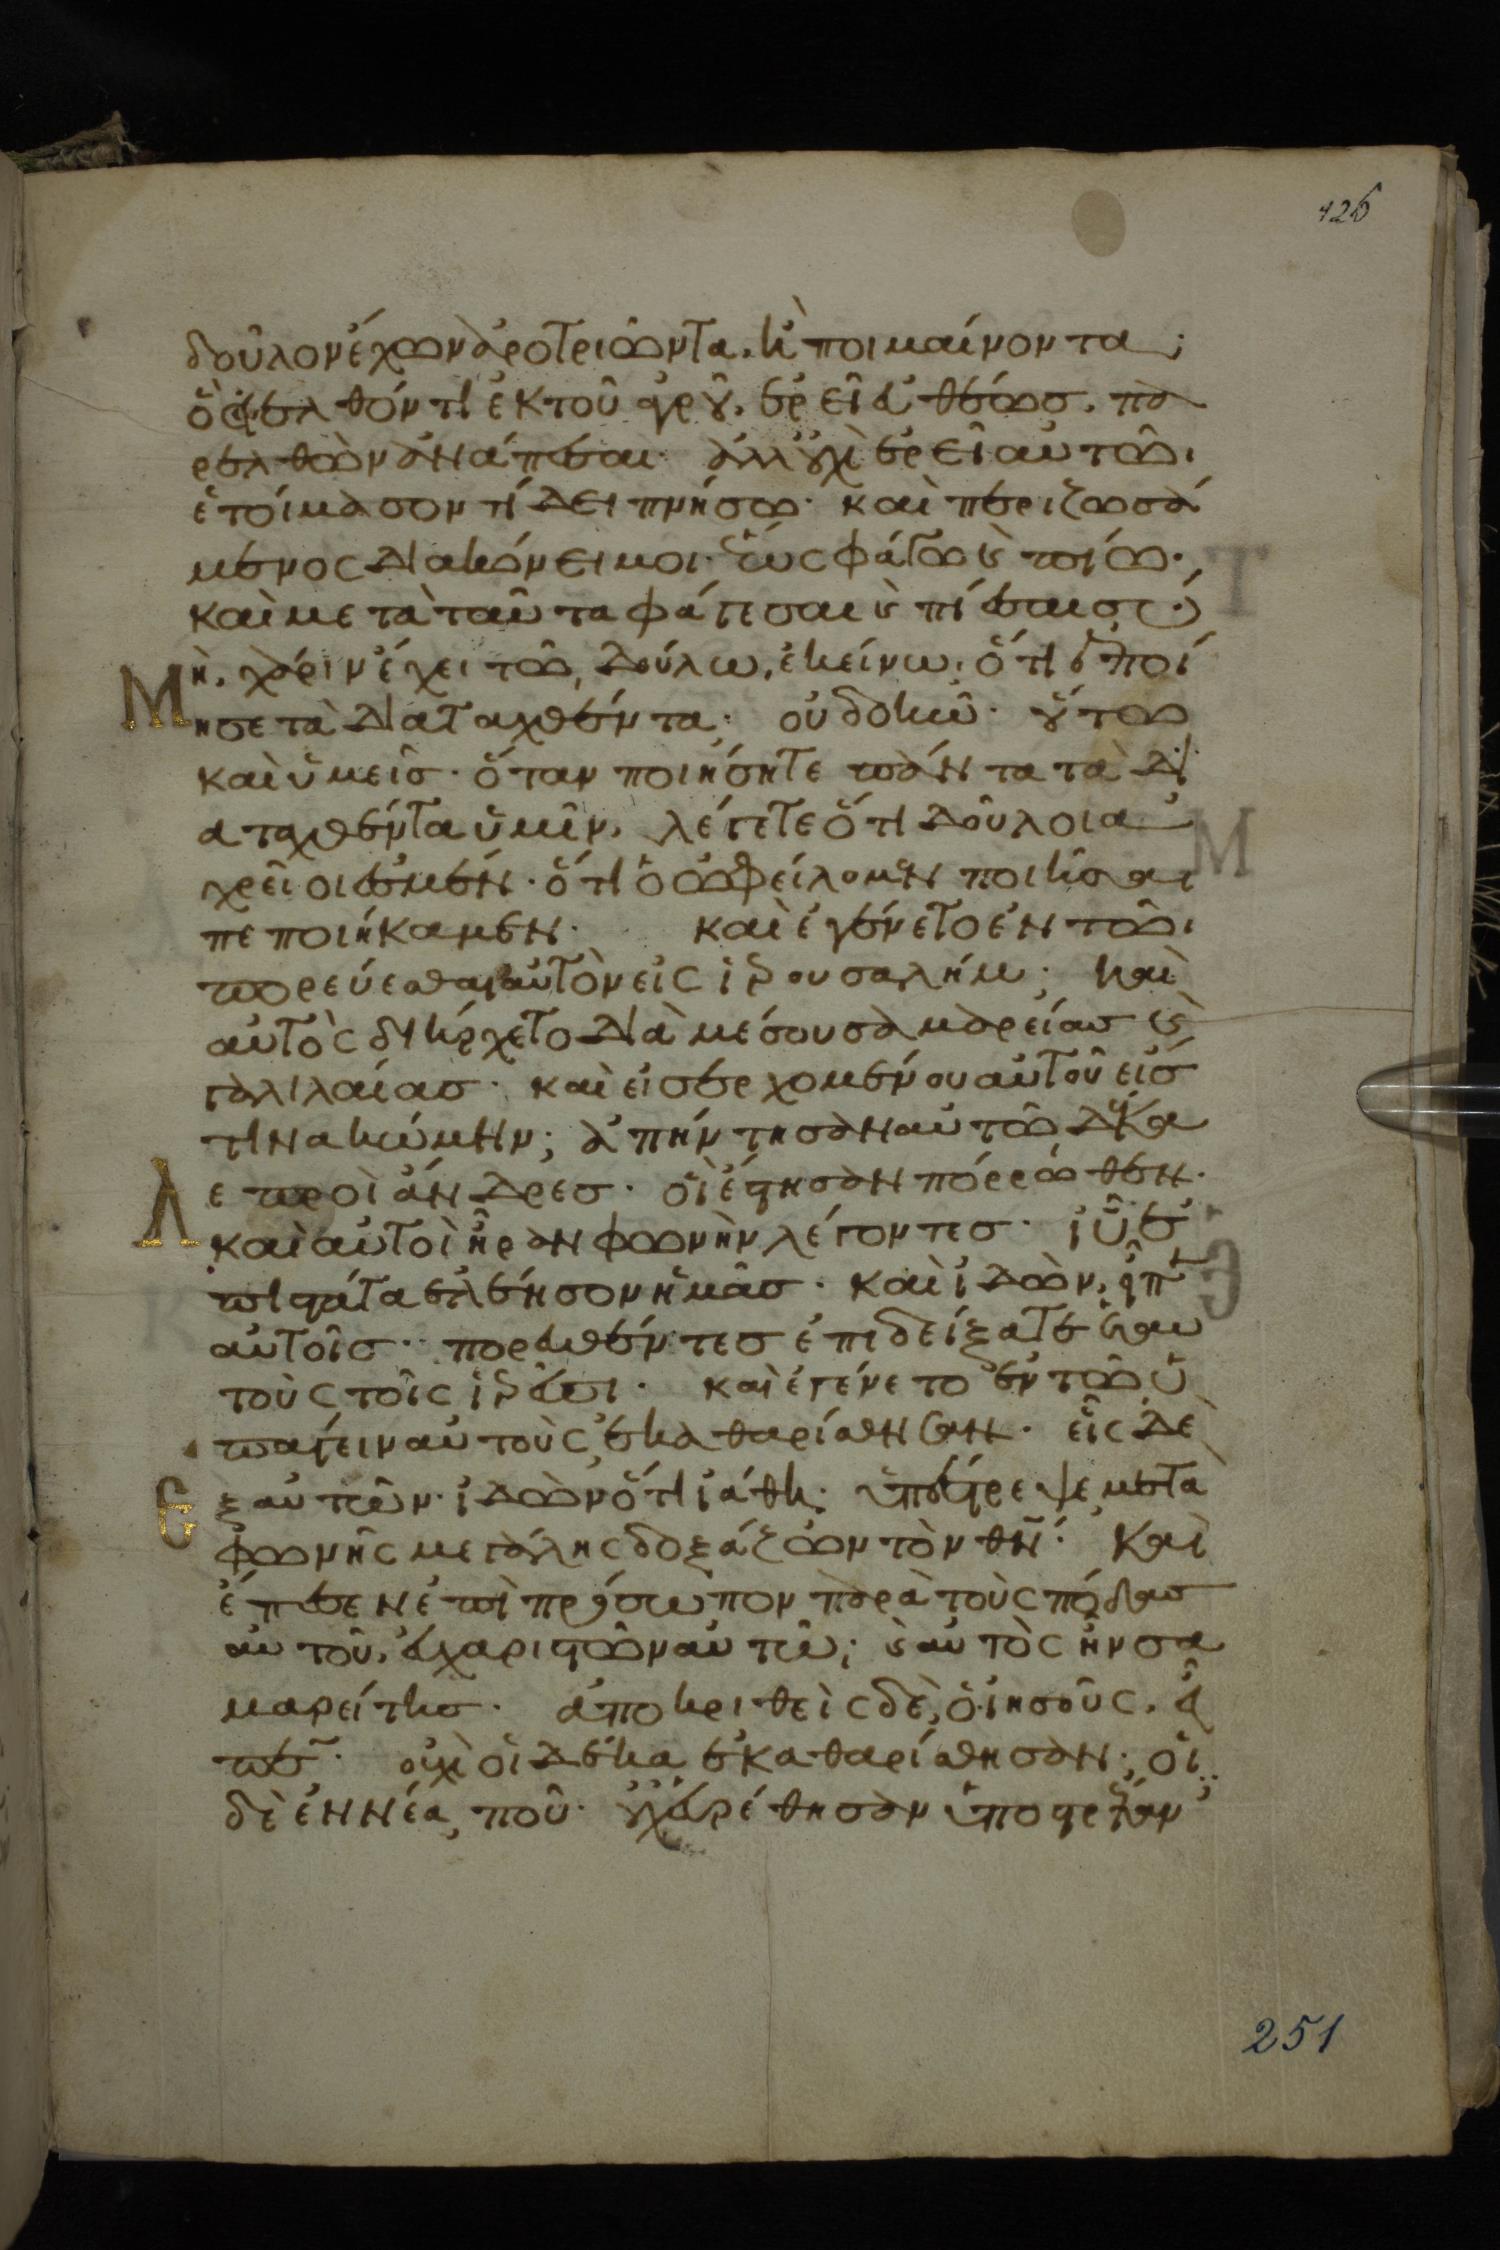 126
δοῦλον ἔχων ἀροτριῶντα, ἢ ποιμαίνοντα;
ὃς εἰσελθόντι ἐκ τοῦ ἀγροῦ, ἐρεῖ εὐθέως, πα
ρελθὼν ἀνάπεσαι· ἀλλ οὐχὶ ἐρεῖ αὐτῶι
ἑτοίμασον τί δειπνήσω· καὶ περιζωσά
μενος διακόνει μοι· ἕως φάγω κ πίω·
καὶ μετὰ ταῦτα φάγεσαι κ πίεσαι σύ·
Μὴ, χάριν ἔχει τῶ δούλω, ἐκείνω, ὅτι ἐποί
ησε τὰ διαταχθέντα; οὐ δοκῶ· οὕτω
καὶ ὑμεῖς· ὅταν ποιήσητε πάντα τὰ δι
αταχθέντα ὑμῖν, λέγετε ὅτι δοῦλοι α
χρεῖοι ἐσμέν· ὅτι ὃ ὠφείλομεν ποιῆσαι
πεποιήκαμεν· καὶ ἐγένετο ἐν τῶι
πορεύεσθαι αὐτὸν εἰς ἱερουσαλήμ; καὶ
αὐτὸς διήρχετο διὰ μέσου σαμαρείας κ
γαλιλαίας· καὶ εἰσερχομένου αὐτοῦ εἴς
τινα κώμην; ἀπήντησαν αὐτῶ δέκα
λεπροὶ ἄνδρες· οἳ ἔστησαν πόρρωθεν·
καὶ αὐτοὶ ἦραν φωνὴν λέγοντες· ἰῦ ἐ
πιστάτα ἐλέησον ἡμᾶς· καὶ ἰδὼν, εἶπεν
αὐτοῖς· πορευθέντες ἐπιδείξατε ἑαυ
τοὺς τοῖς ἱερεῦσι· καὶ ἐγένετο ἐν τῶ ὑ
πάγειν αὐτοὺς, ἐκαθαρίσθησαν· εἷς δὲ
ἐξ αὐτῶν· ἰδὼν ὅτι ἰάθη· ὑπέστρεψε, μετὰ
φωνῆς μεγάλης δοξάζων τὸν θν· καὶ
ἔπεσεν ἐπὶ πρόσωπον παρὰ τοὺς πόδας
αὐτοῦ, εὐχαριστῶν αὐτῶ; κ αὐτὸς ἦν σα
μαρείτης· ἀποκριθεὶς δὲ, ὁ ἰησοῦς, εἶ
πεν· οὐχὶ οἱ δέκα ἐκαθαρίσθησαν; οἱ
δὲ ἐννέα, ποῦ· οὐχ εὑρέθησαν ὑποστρέψαν
251